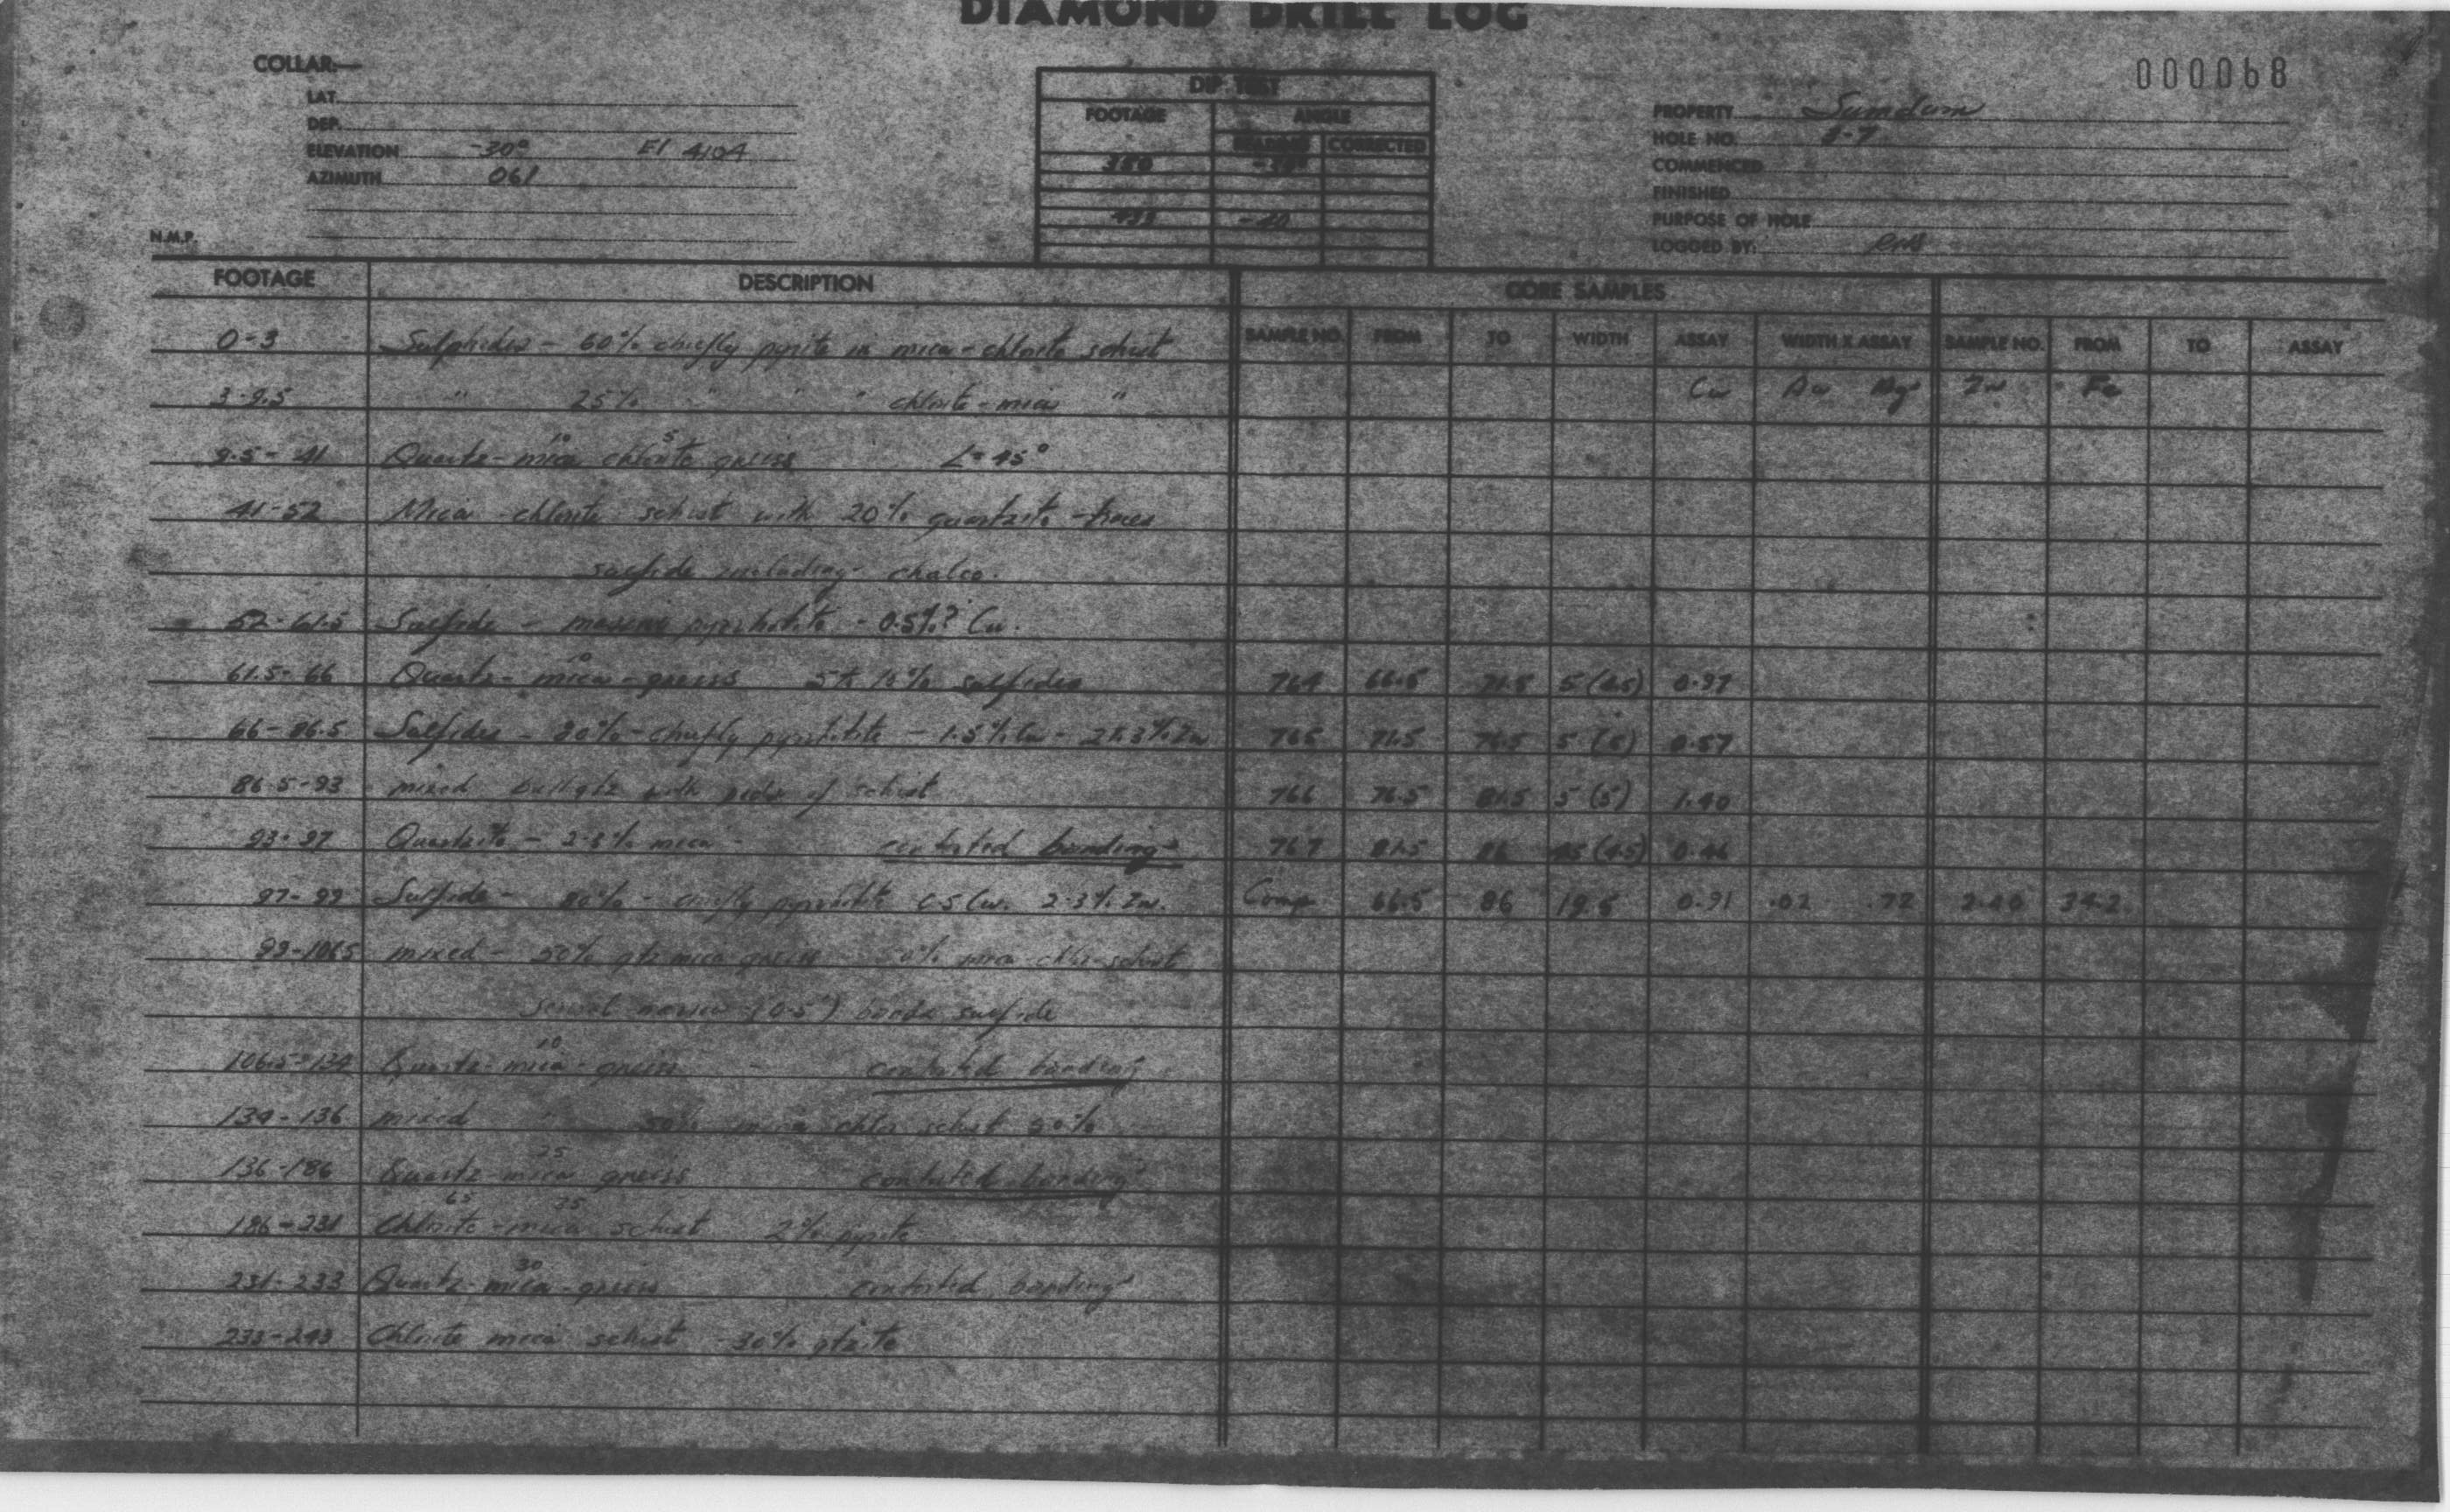 DIAMOND DRILL LOG
000068
COLLAR:—
LAT.
DEP.
ELEVATION -30° El 4104
AZIMUTH 061
N.M.P.
DIP TEST
FOOTAGE ANGLE
READING CORRECTED
350
-40
PROPERTY Sumdum
HOLE NO.
COMMENCED
FINISHED
PURPOSE OF HOLE
LOGGED BY:
FOOTAGE DESCRIPTION CORE SAMPLES
SAMPLE NO. FROM TO WIDTH ASSAY WIDTH X ASSAY SAMPLE NO. FROM TO ASSAY
Cu Au Ag Zn Fe
0-3 Sulphides - 60% chiefly pyrite in mica-chlorite schist
3-9.5 " 25% " " " chlorite-mica "
9.5-41 Quartz-mica 10 chlorite 5 gneiss L=45°
41-52 Mica-chlorite schist with 20% quartzite - traces
sulfide including chalco.
52-61.5 Sulfide - massive pyrrhotite - 0.5%? Cu.
61.5-66 Quartz-mica 10-gneiss 5 to 10% sulfides 764 66.5 71.5 5 (4.5) 0.97
66-86.5 Sulfides - 80% - chiefly pyrrhotite - 1.5% Cu - 2 to 3% Zn 765 71.5 76.5 5 (5) 0.57
86.5-93 mixed bull qtz with of schist 766 76.5 81.5 5 (5) 1.40
93-97 Quartzite - mica - contorted banding 767 81.5 86 4.5 (4.5) 0.46
97-99 Sulfide - 80% - chiefly pyrrhotite 0.5 Cu. 2-3% Zn. Comp 66.5 86 19.5 0.91 .02 .72 2.40 34.2
99-106.5 mixed - 50% qtz mica gneiss mica chlor-schist
several narrow (0.5') bands sulfide
106.5-134 Quartz-mica 10-gneiss - contorted banding
134-136 mixed 50% mica chlor schist 50%
136-186 Quartz-mica 25 gneiss contorted banding
186-231 Chlorite 65-mica 35 schist 2% pyrite
231-233 Quartz-mica 30-gneiss contorted banding
233-243 Chlorite mica schist -30% qtzite